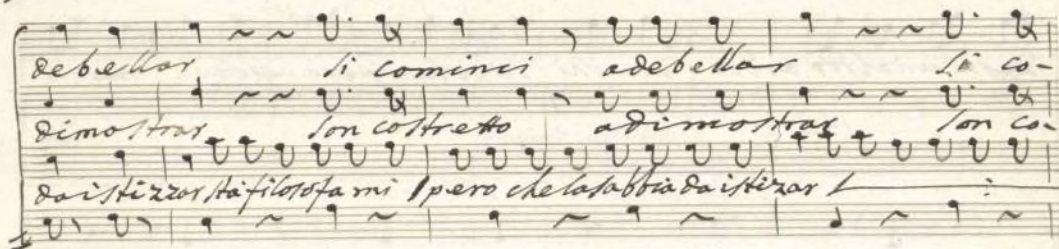 debellar si cominci a debellar si co-
dimostrar son costretto a dimostrar son co-
da istizzar sta filosofa mi spero che la sabbia da istizar